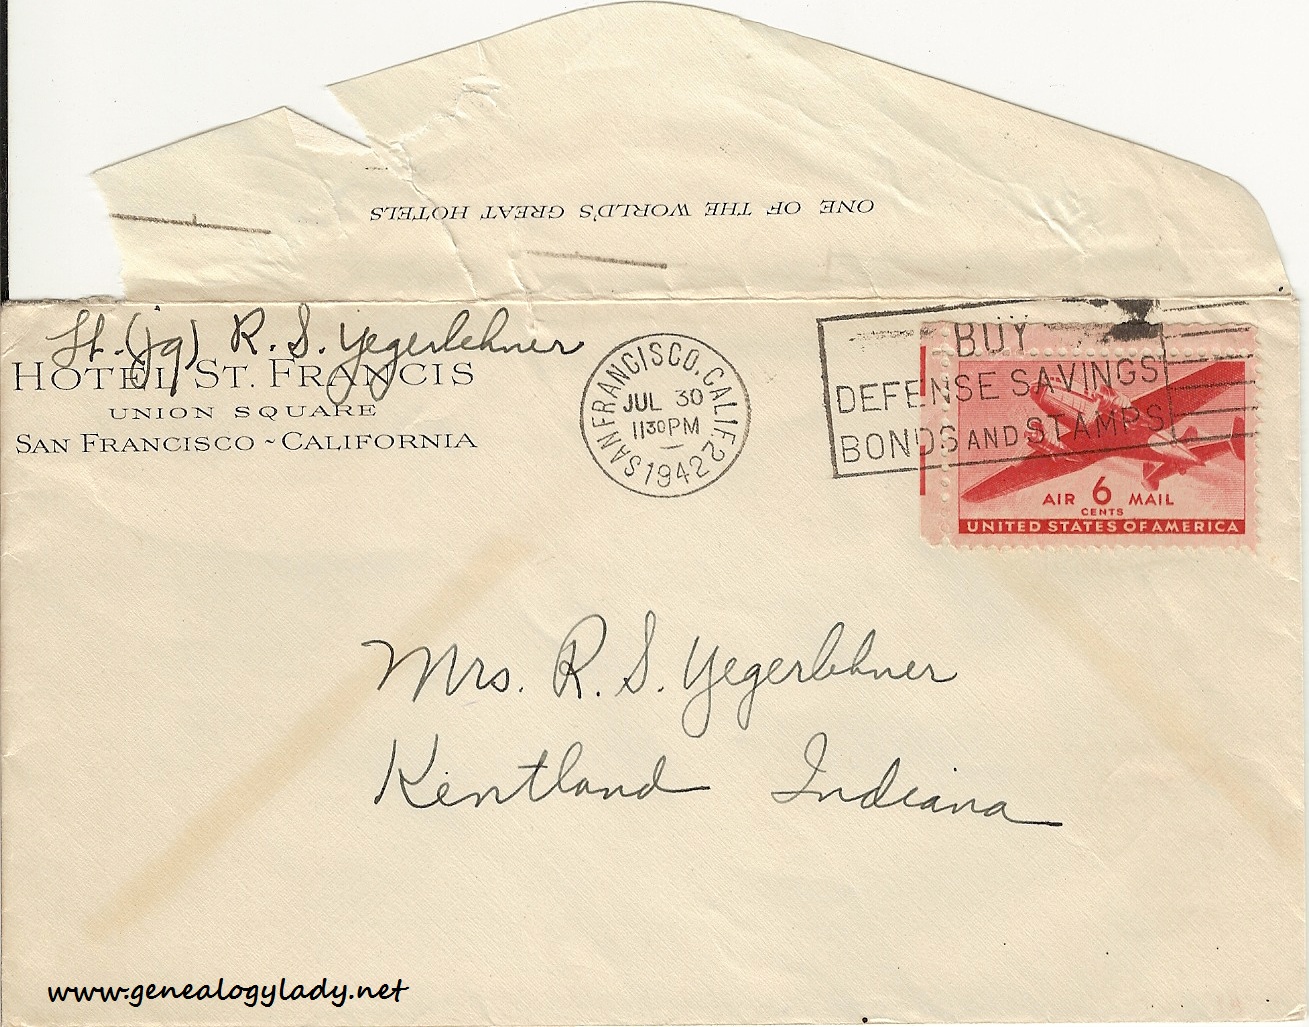 ONE OF THE WORLD'S GREAT HOTELS
Lt. (jg) R. S. Yegerlehner
HOTEL ST. FRANCIS
UNION SQUARE
SAN FRANCISCO ~ CALIFORNIA
SAN FRANCISCO, CALIF. 22
JUL 30
1130PM
1942
BUY
DEFENSE SAVINGS
BONDS AND STAMPS
AIR 6 MAIL
CENTS
UNITED STATES OF AMERICA
Mrs. R. S. Yegerlehner
Kentland Indiana
www.genealogylady.net